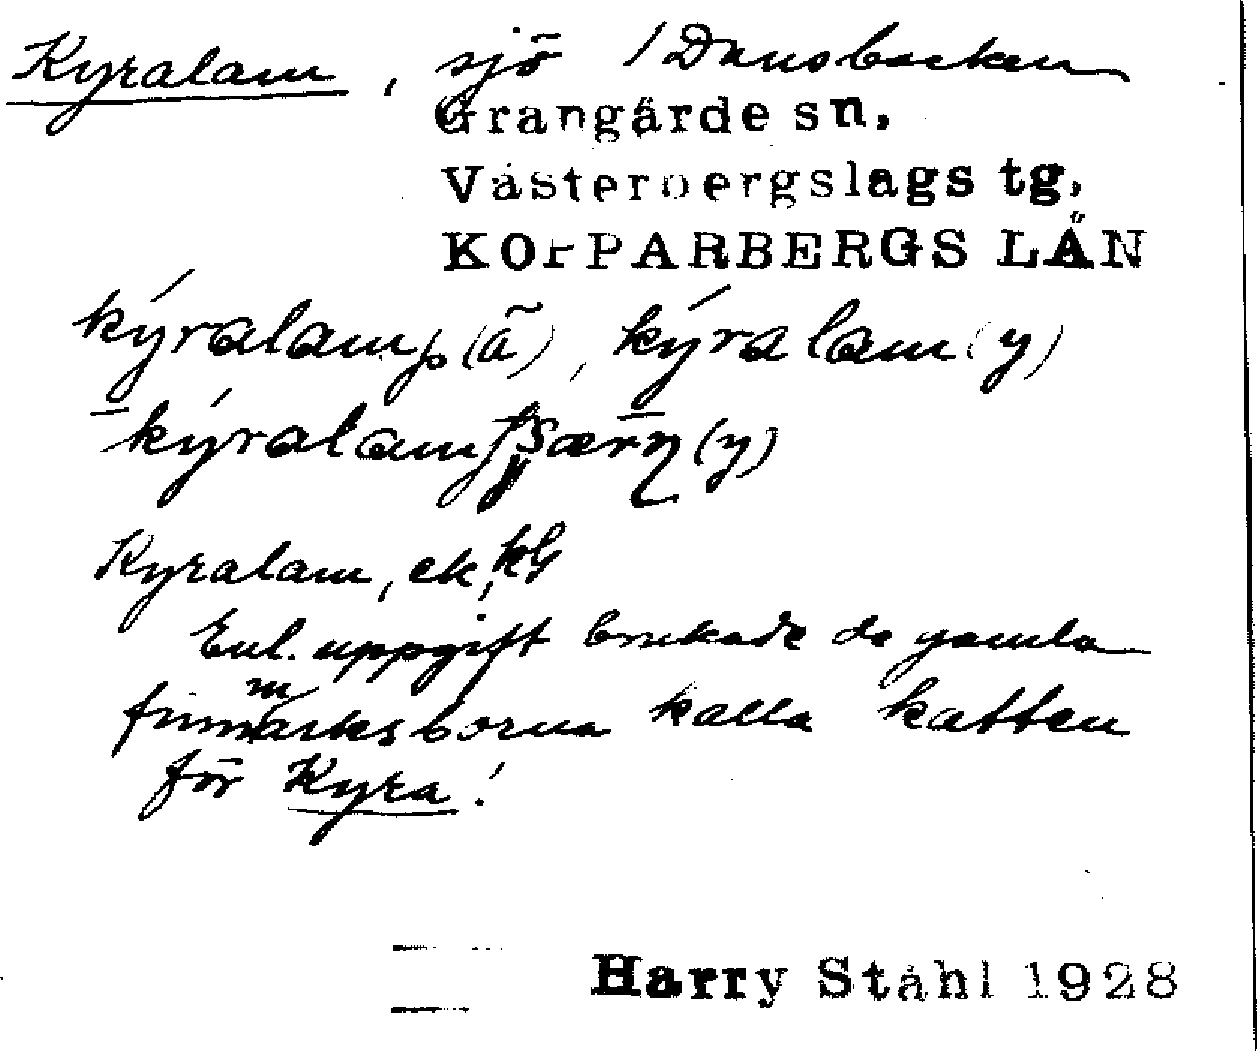 Kyralam, sjö / Dansbacken
Grangärde sn.
Västerbergslags tg.
KOPPARBERGS LÄN
kýralamp (ã), kýralam (y)
kýralam (y)
Kyralam, ek, kG
Enl. uppgift brukade de gamla
finnmarksborna kalla katten
för Kyra!
Harry Ståhl 1928